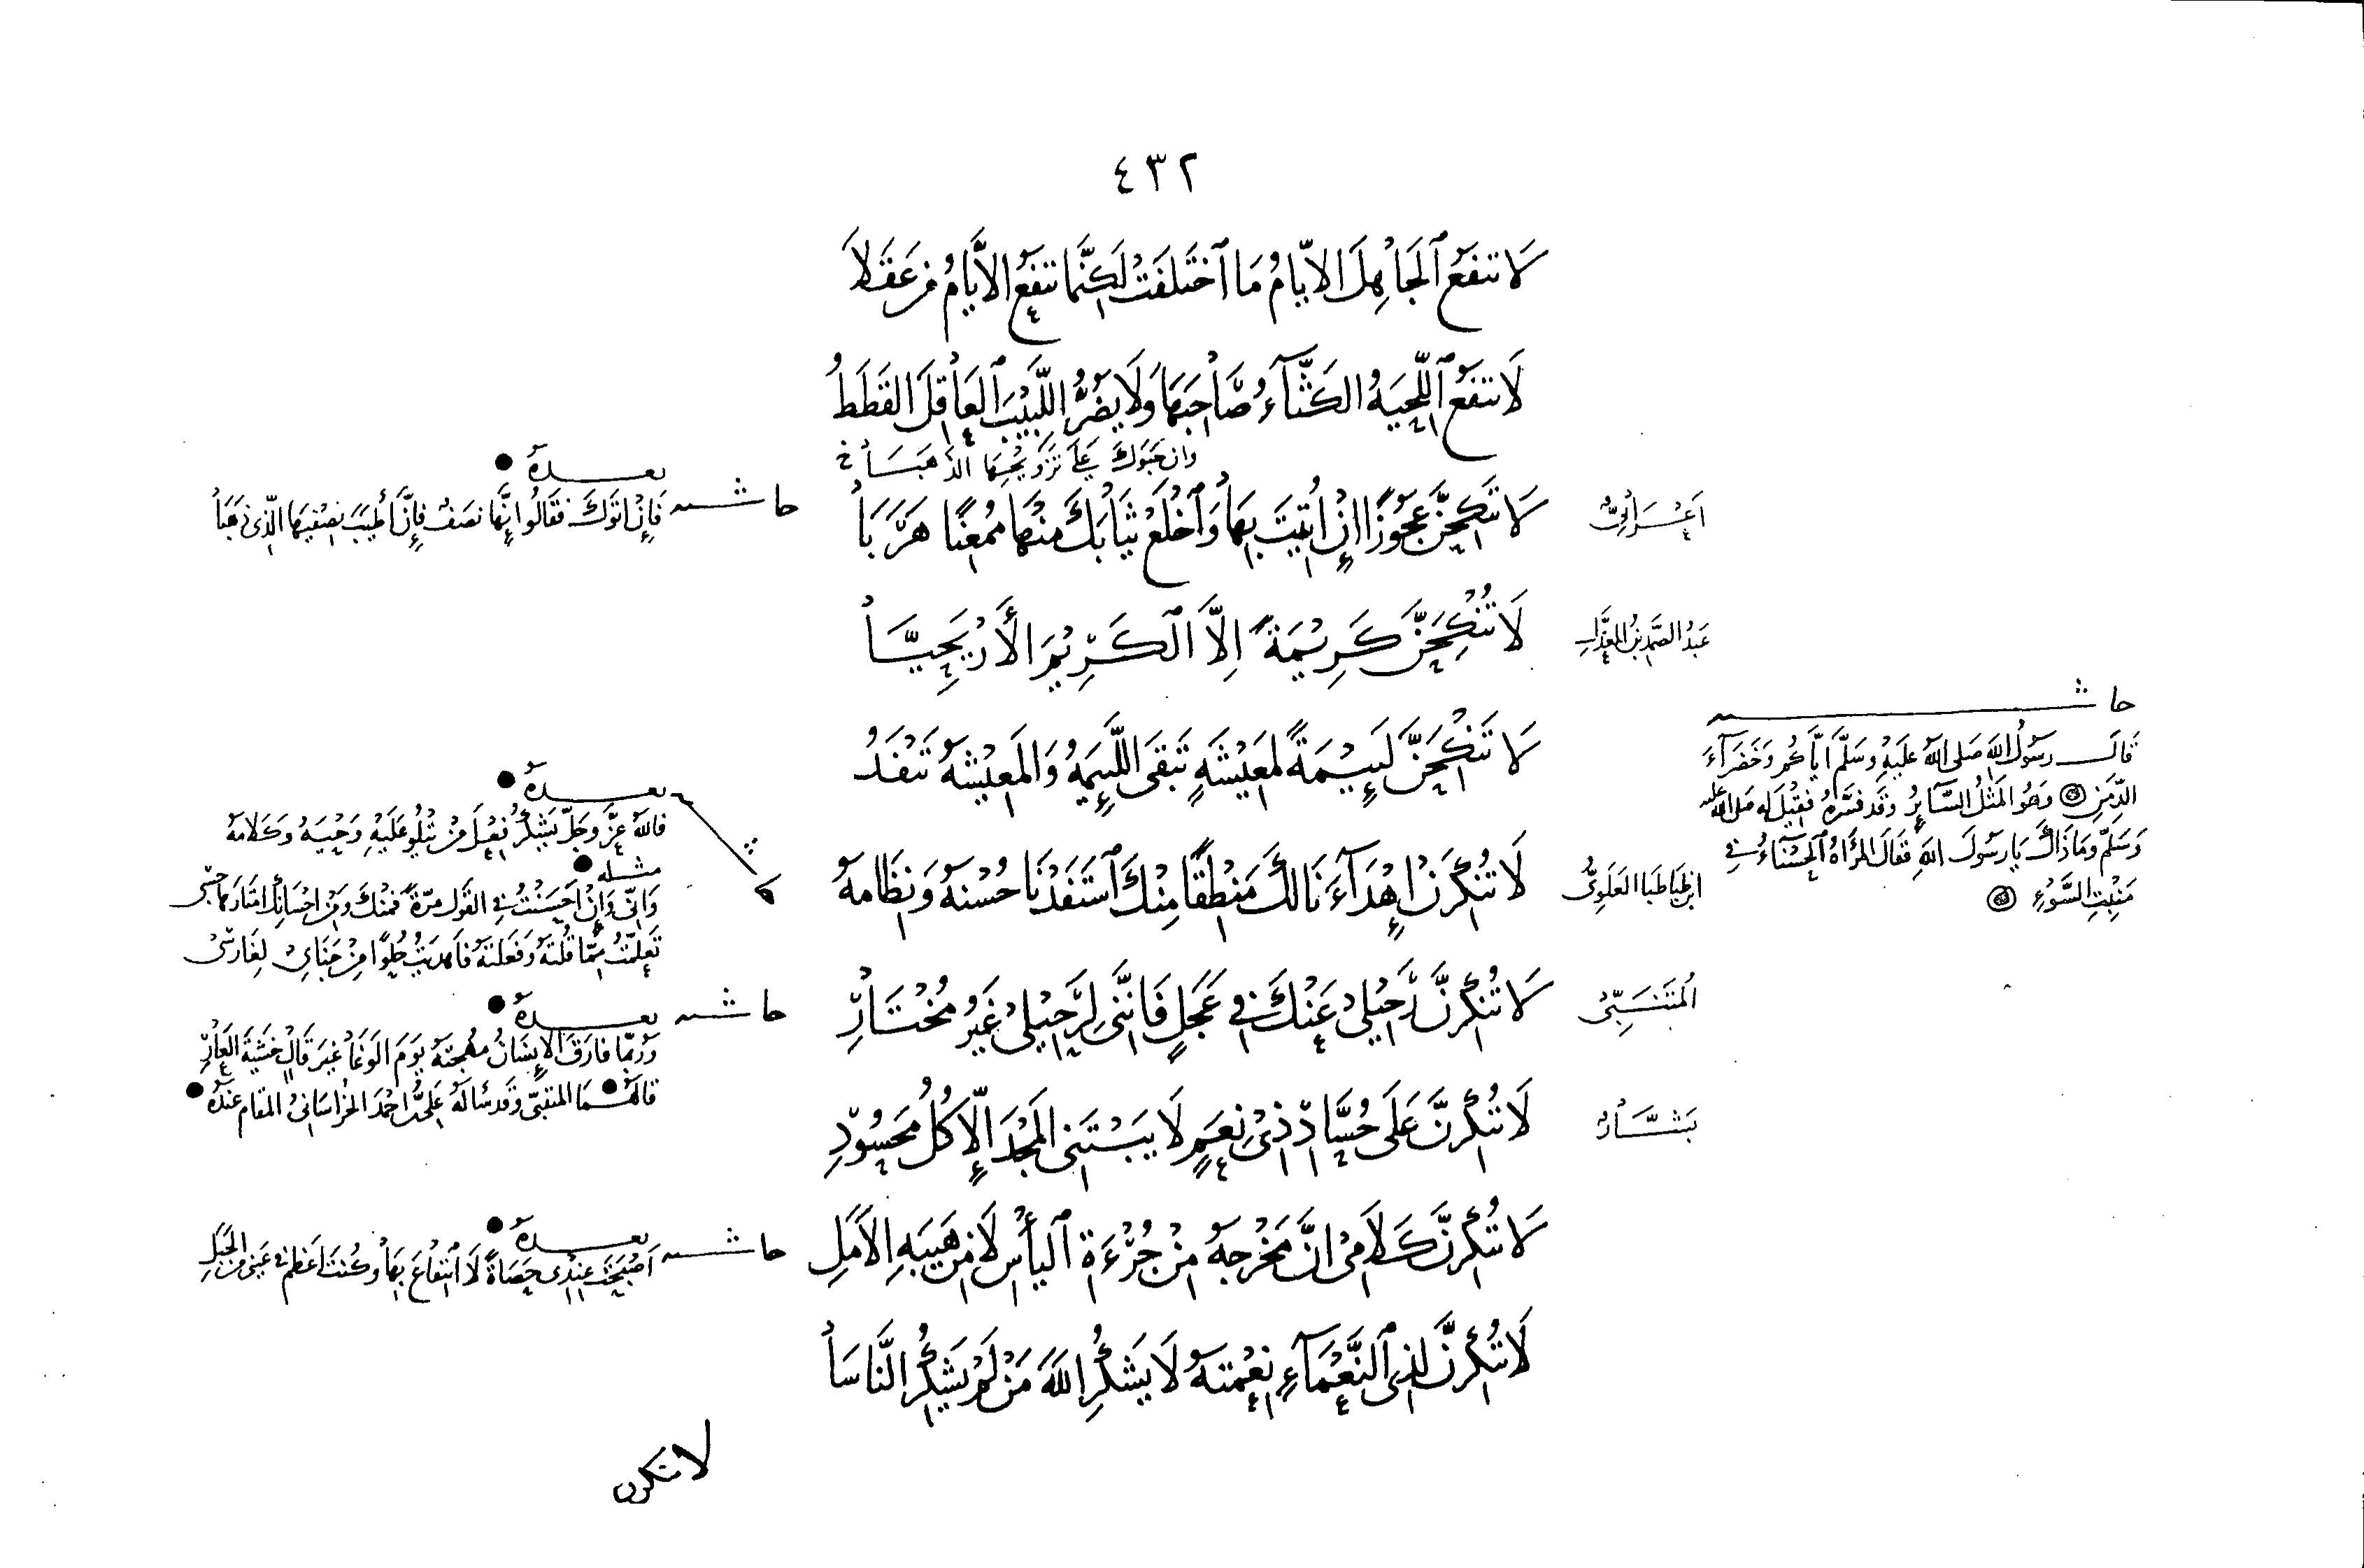 ٤٣٢
لَا تنفَعُ ٱلجَاهِلَ الايّامُ مَا ٱختَلفَتْ لَكِنَّما تنفَع الايَّامُ من عَقَلَا
لَا تنفَعُ ٱللّحيَةُ الكَثَّآءُ صَّاحِبَهَا وَلَا يضُرُّ اللَّبِيْبَ ٱلعَاقِلَ القَطَطُ
وان حَبَوكَ عَلَى تزَويجهَا الذَهَبَا
اَعْرَابيٌّ
لَا تَنكِحَنَّ عَجُوزًا إِنْ اُتِيْتَ بِهَا وَٱخْلَعْ ثيَابَكَ منهَا مُمْعِنًا هَرَبَا
حاشية
بعدهُ
فَإِنْ اتَوكَ فقَالُوا إِنَّها نصَفٌ فإِنَّ أطيَبَ نصِفْيهَا الّذى ذهَبَا
عَبدُ الصَّمد بنُ المعَذَّل
لَا تُنْكِحَنَّ كَرِيْمَةً اِلَّا ٱلكَرِيْمَ الأَرْيَحِيَّا
لَا تَنْكِحَنَّ لَئِيْمَةً لمَعِيْشَةٍ تَبقَى اللَّئِيمَةُ وَالمَعِيْشةُ تَنْفَدُ
حاشية
قَالَ رسَوُلُ اللّهِ صَلى اللّهُ عَليَهِ وَسَلّمَ ايَّاكُمْ وَخَضَرآءَ
الدِّمَنِ وَهُو المَثلُ السَّآئِرُ وَقَد فسَّرهُ فقِيْلَ لهِ صَلى اللّهُ عَليه
وَسَلّم وَمَا ذَاكَ يَا رسَولَ اللّهِ فقَالَ المرَاةُ ٱلحَسْنآءُ في
مَنْبِتِ السَّوْءِ
ابن طَبَاطبَا العَلَوِىُّ
لَا تُنْكِرَنْ إِهْدَآءَنَا لكَ مَنْطِقًا مِنْكَ ٱستَفَدْنَا حُسْنَهُ وَنظَامَهُ
بعدهُ
فاللّهُ عزَّ وَجَلَّ يَشْكُرُ فِعْلَ مَنْ يَتْلُو عَلَيْهِ وَحْيَهُ وَكَلَامَهُ
مثله
وَانّى وَإِنْ أَحْسَنْتُ فِي القَولِ مرّةً فمنْكَ وَمن احْسَانِكَ
تعَلمّتُ ممّا قُلتَهُ وَفَعَلتَهُ فاَهدَيْتُ حُلوًا مِنْ جَنَاىْ لغَارِسْ
المُتَنَبِّى
لَا تُنْكِرَنَّ رَحِيْلِى عَنْكَ فِى عَجَلٍ فَانَّنى لرَحِيْلِى غَيْرُ مُخْتَارِ
حاشية
بعدهُ
وَرُبّما فارَقَ الاِنسَانُ مُهجَتهُ يَومَ الوَغَا غيرَ قَالٍ خشيَةَ العَارِ
قالهُمَا المتنبّى وَقَد سَالهُ علىّ احمَدَ الخُرَاسَانىُّ المقام عندهُ
بَشّارُ
لَا تُنْكِرَنَّ عَلَى حُسَّادِ ذِىْ نِعَمٍ لَا يَبْتَنى المَجْدَ اِلّا كُلُّ مَحسُوْدِ
لَا تُنْكِرَنَّ كَلَامِىْ انَّ مَخْرجهُ مِنْ جُرْءَةِ ٱليَأْسِ لَا مِنْ هَيبَةِ الاَمَلِ
حاشية
بعدهُ
اَصْبَحْتَ عِنْدِى حَصَاةً لَا ٱنتِفَاعَ بِهَا وَكُنتَ اَعظَمَ فى عَينى من الجَبَلِ
لَا تُنْكِرَنَّ لِذِى ٱلنَّعْمَآءِ نِعْمَتهُ لَا يَشكُرُ اللّهَ مَنْ لَمْ يَشكُرِ النَّاسَا
لا تنكرن